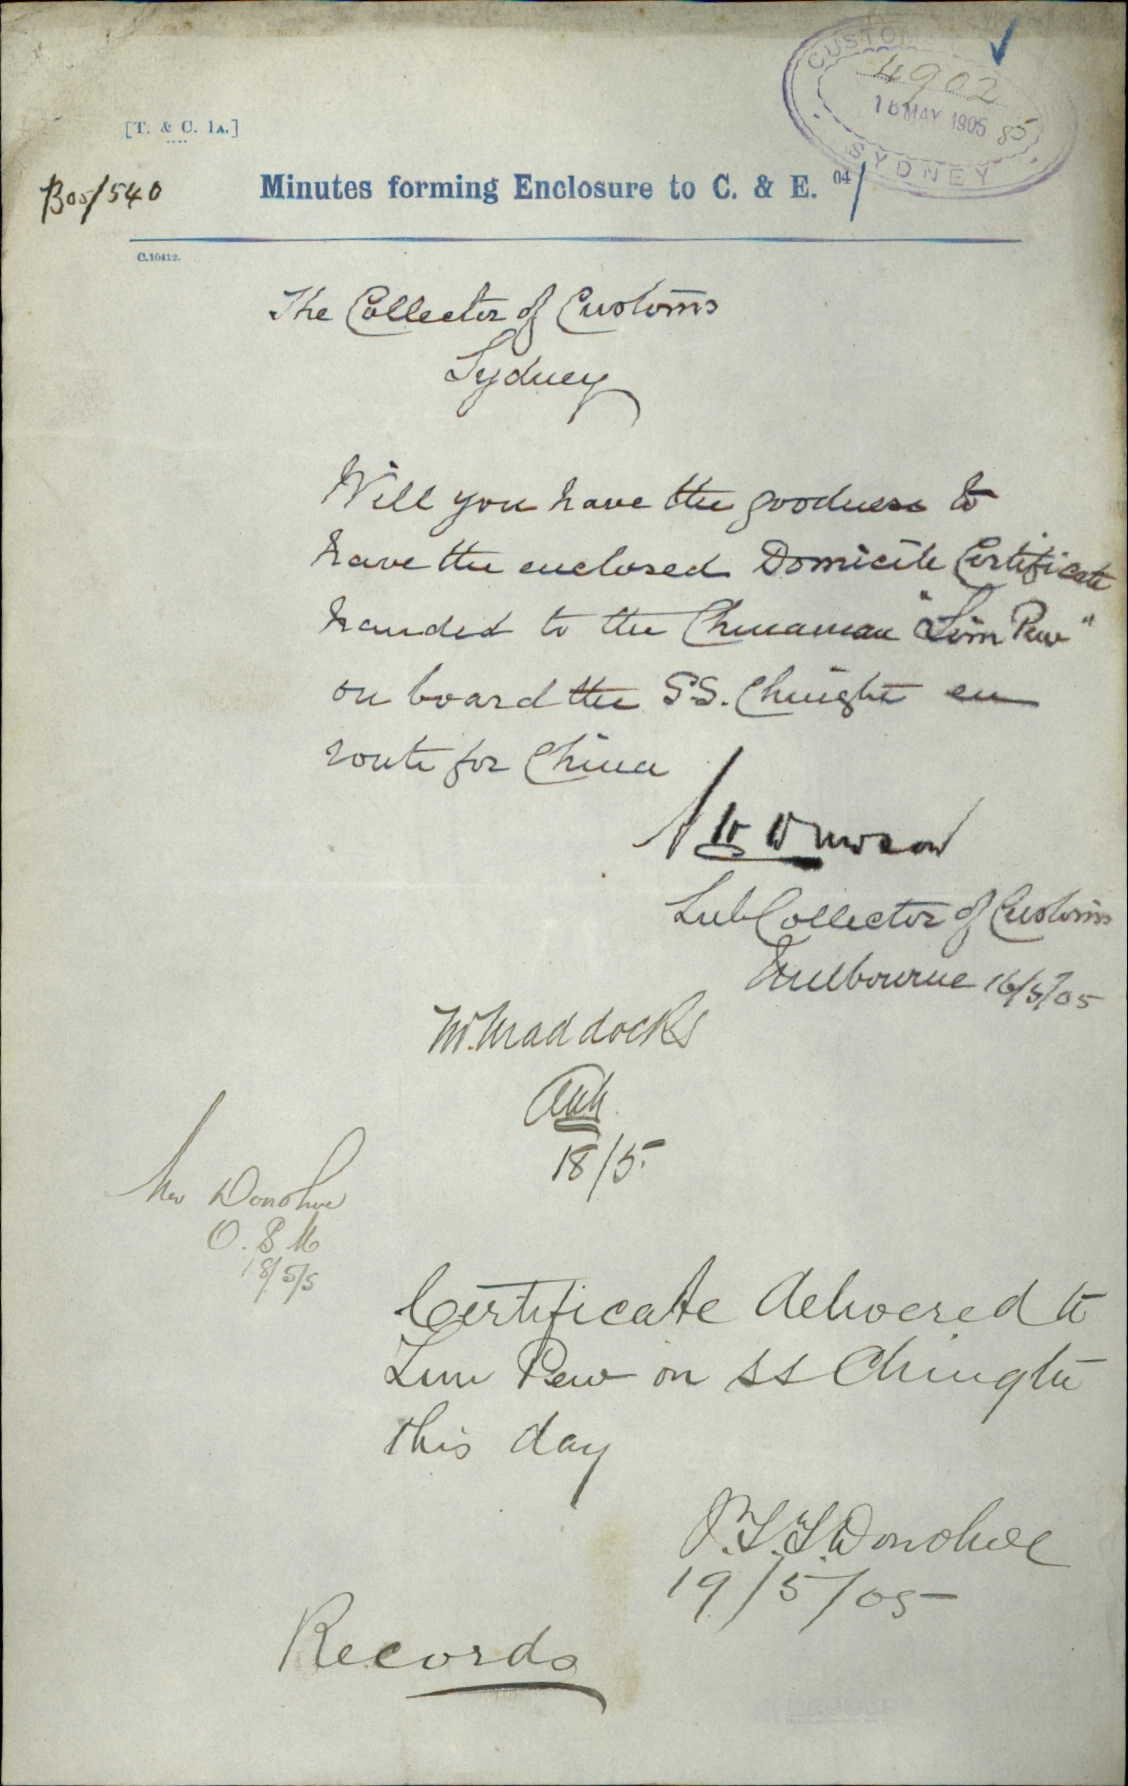 CUSTOMS
4902
16 MAY 1905 85
SYDNEY
[T. & C. 1A.]
B05/540
Minutes forming Enclosure to C. & E. 04/
C.10412.
The Collector of Customs
Sydney
Will you have the goodness to
have the enclosed Domicile Certificate
handed to the Chinaman "Lim Pew"
on board the SS. Chingtu en
route for China
Sub Collector of Customs
Melbourne 16/5/05
Mr. Maddocks
18/5.
Mr Donohue
O. B M
18/5/5
Certificate delivered to
Lim Pew on SS Chingtu
this day
Donohue
19/5/05
Records